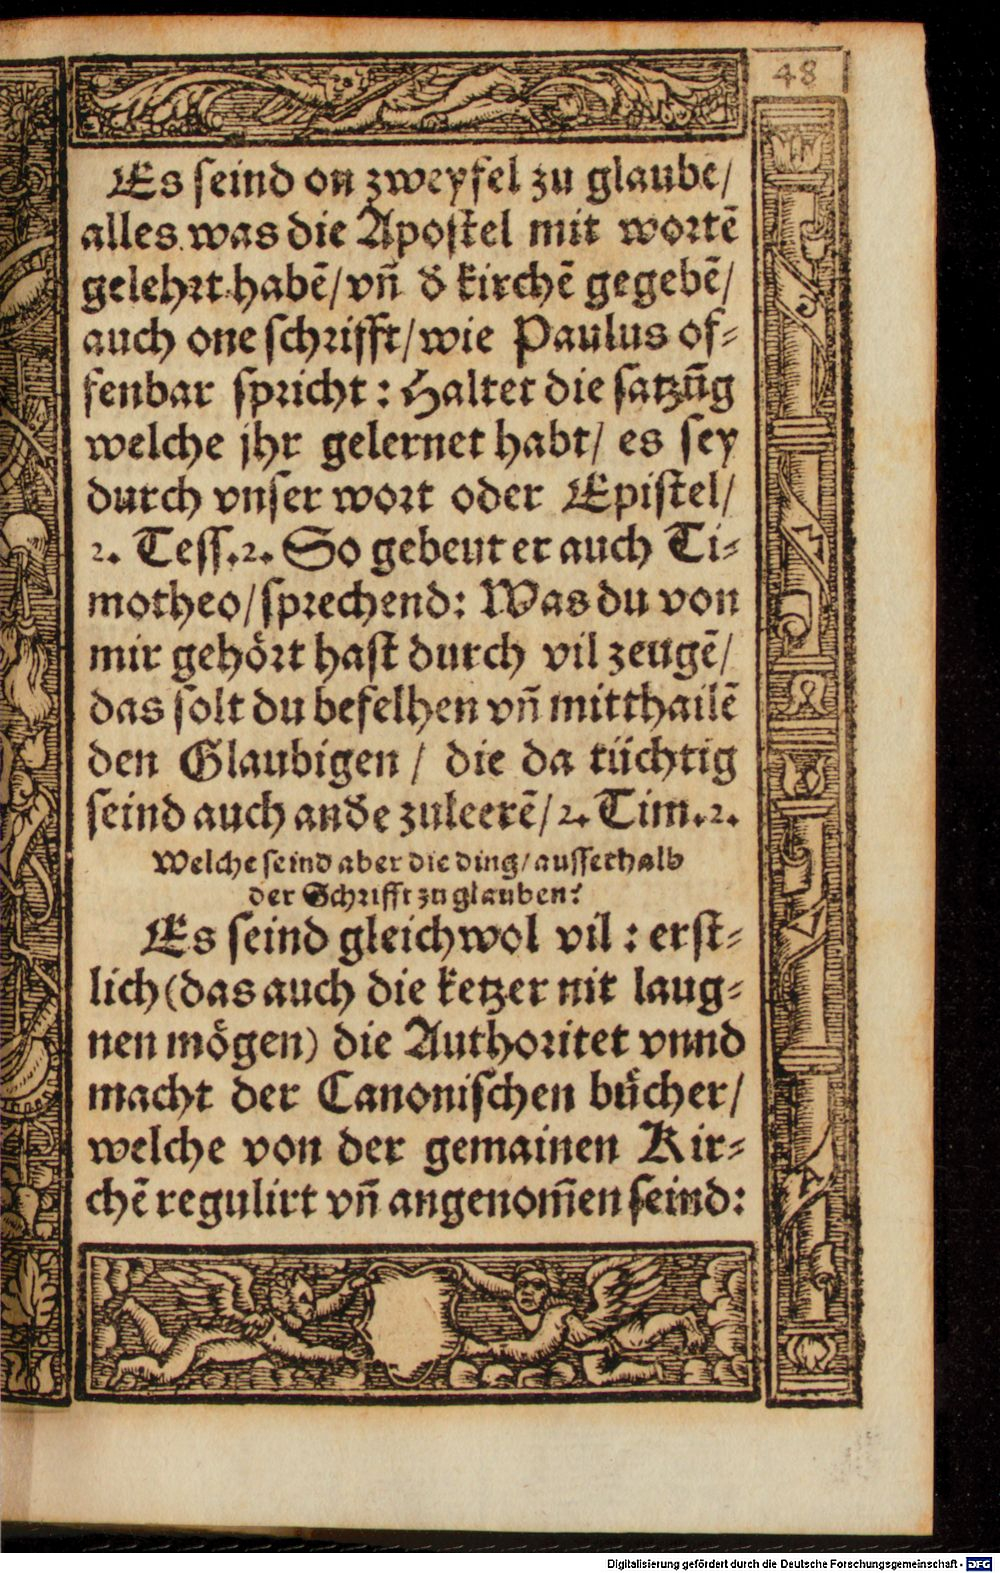 48
Es seind on zweyfel zu glaubē/
alles was die Apostel mit wortē
gelehrt habē/vñ đ kirchē gegebē/
auch one schrifft/wie Paulus of⸗
fenbar spricht: Haltet die satzūg
welche jhr gelernet habt/ es sey
durch vnser wort oder Epistel/
2. Tess.2. So gebeut er auch Ti⸗
motheo/sprechend: Was du von
mir gehört hast durch vil zeugē/
das solt du befelhen vñ mitthailē
den Glaubigen / die da tüchtig
seind auch anđe zuleerē/2. Tim.2.
Welche seind aber die ding/ausserhalb
der Schrifft zu glauben?
Es seind gleichwol vil: erst⸗
lich (das auch die ketzer nit laug⸗
nen mögen) die Authoritet vnnd
macht der Canonischen bücher/
welche von der gemainen Kir⸗
chē regulirt vñ angenom̄en seind:
Digitalisierung gefördert durch die Deutsche Forschungsgemeinschaft - DFG